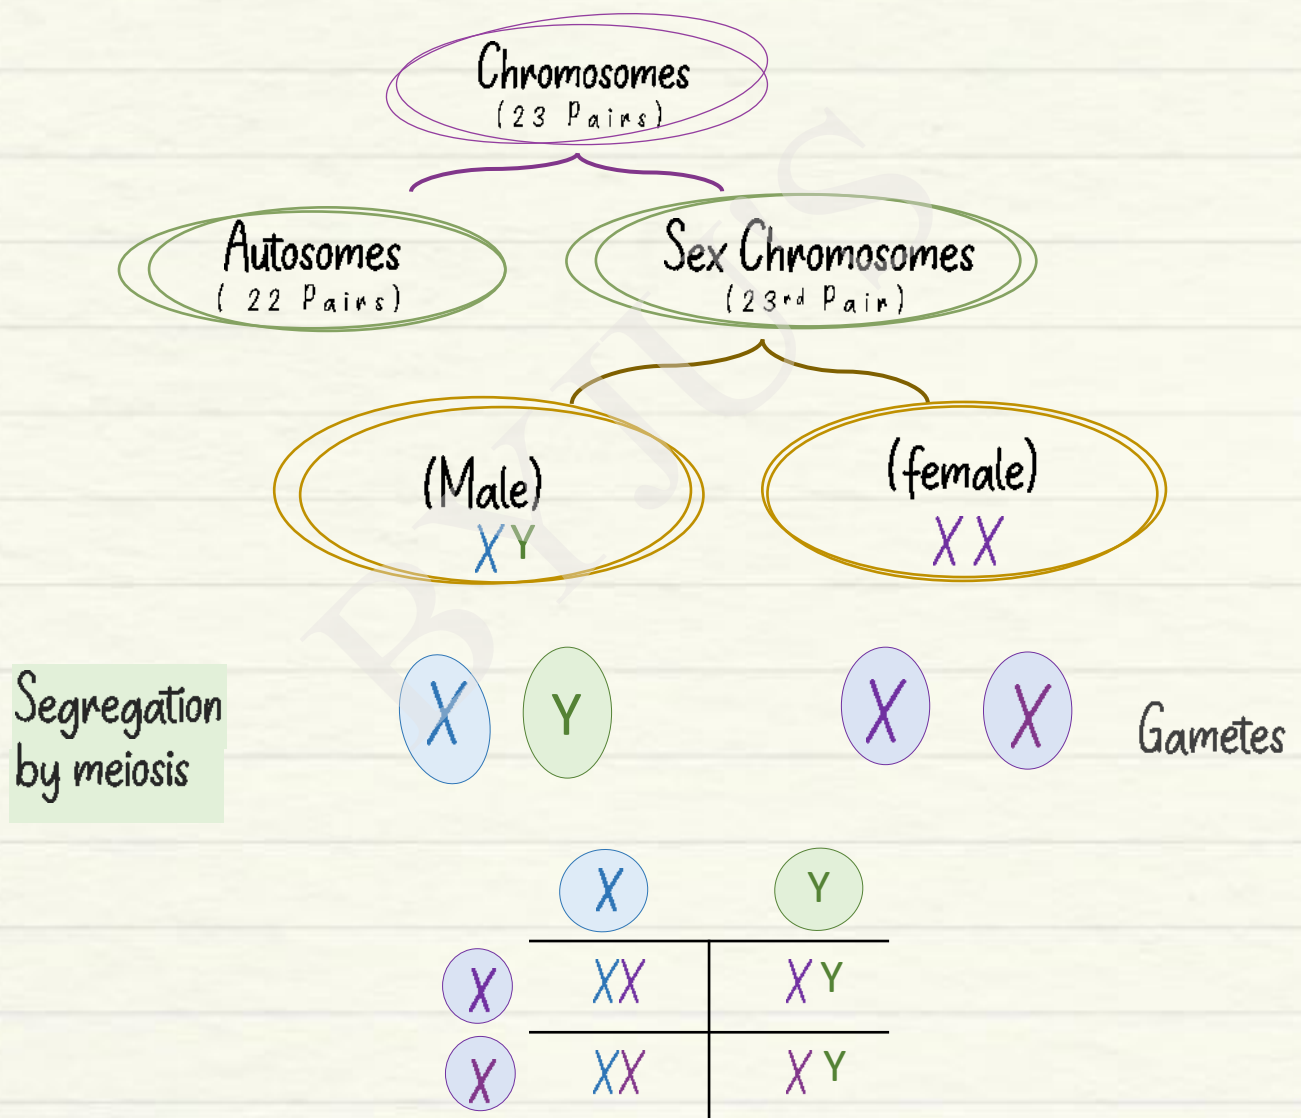 Chromosomes
(23 Pairs)
Autosomes
( 22 Pairs)
Sex Chromosomes
(23rd Pair)
(Male)
X Y
(female)
X X
Segregation
by meiosis
X Y X X
Gametes
X Y
X XX X Y
X XX X Y
BYJUS